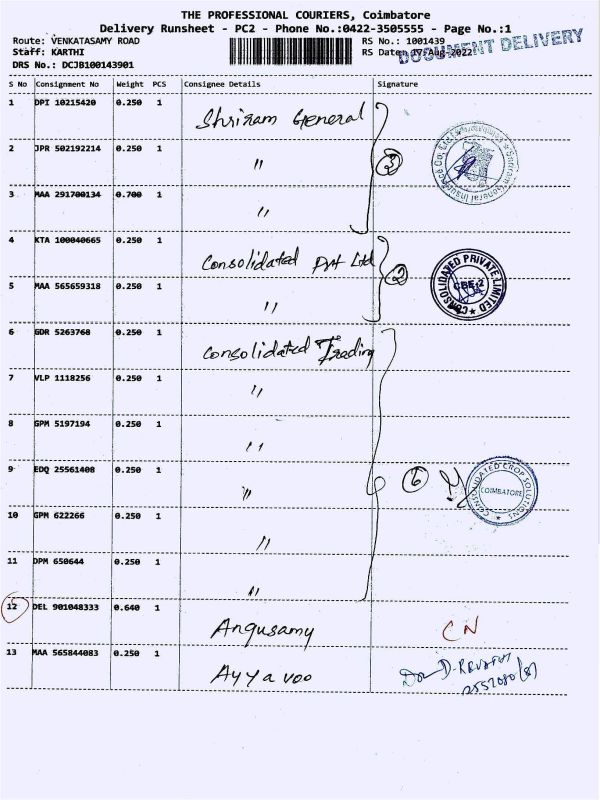 THE PROFESSIONAL COURIERS, Coimbatore
Delivery Runsheet - PC2 - Phone No.:0422-3505555 - Page No.:1
Route: VENKATASAMY ROAD
RS No.: 1001439
Staff: KARTHI
RS Date: 17-Aug-2022
DOCUMENT DELIVERY
DRS No.: DCJB100143901
S No Consignment No Weight PCS Consignee Details Signature
1 DPI 10215420 0.250 1 Shriram General
2 JPR 502192214 0.250 1 "
3 MAA 291700134 0.700 1 "
3
Shriram General Insurance Co. Ltd
4 KTA 100040665 0.250 1 Consolidated Pvt Ltd
5 MAA 565659318 0.250 1 "
2
CONSOLIDATED PRIVATE LIMITED
CBE-2
6 GDR 5263768 0.250 1 Consolidated Trading
7 VLP 1118256 0.250 1 "
8 GPM 5197194 0.250 1 "
9 EDQ 25561408 0.250 1 "
10 GPM 622266 0.250 1 "
11 DPM 650644 0.250 1 "
6
CONSOLIDATED CROP SOLUTIONS
COIMBATORE
12 DEL 901048333 0.640 1 Angusamy CN
13 MAA 565844083 0.250 1 Ayyavoo